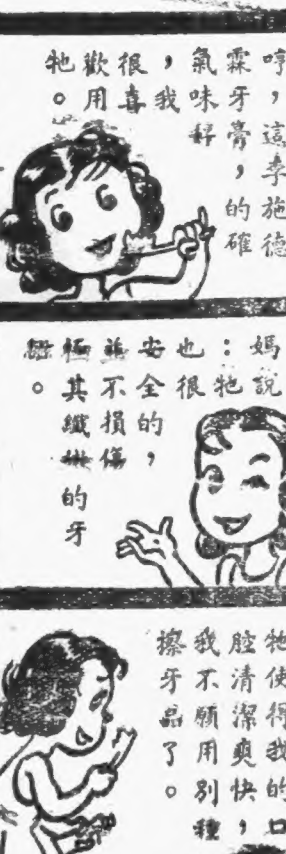 哼，這李施德
霖牙膏，的確
氣味好
，我
很喜
歡用
牠。
媽說
：牠
也很
安全的，
並不損傷
極其纖嫩的牙
。
牠使得我的口
腔清潔爽快，
我不願用別種
擦牙品了。